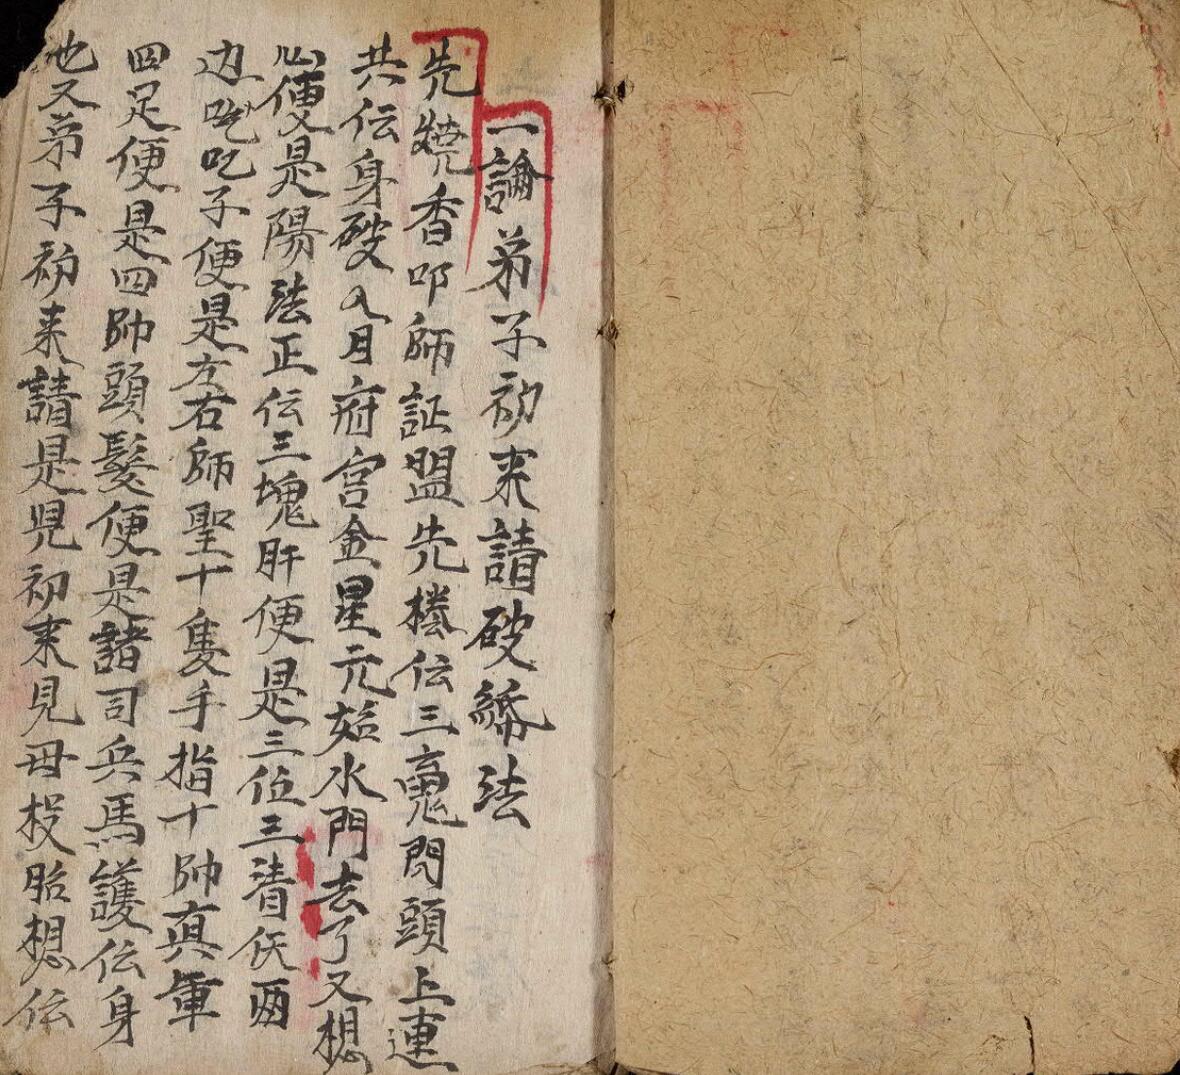 一論弟子初来請破綉法
先燒香叩師証盟先楼伝三魂閃頭上連
共伝身破入月府宮金星元始水門去了又想
心便是陽法正伝三塊肝便是三位三清伕两
边吃子便是左右師聖十隻手指十帥真軍
四足便是四帥頭髮便是諸司兵馬護伝身
也又弟子初来請是児初来見母投胎想伝